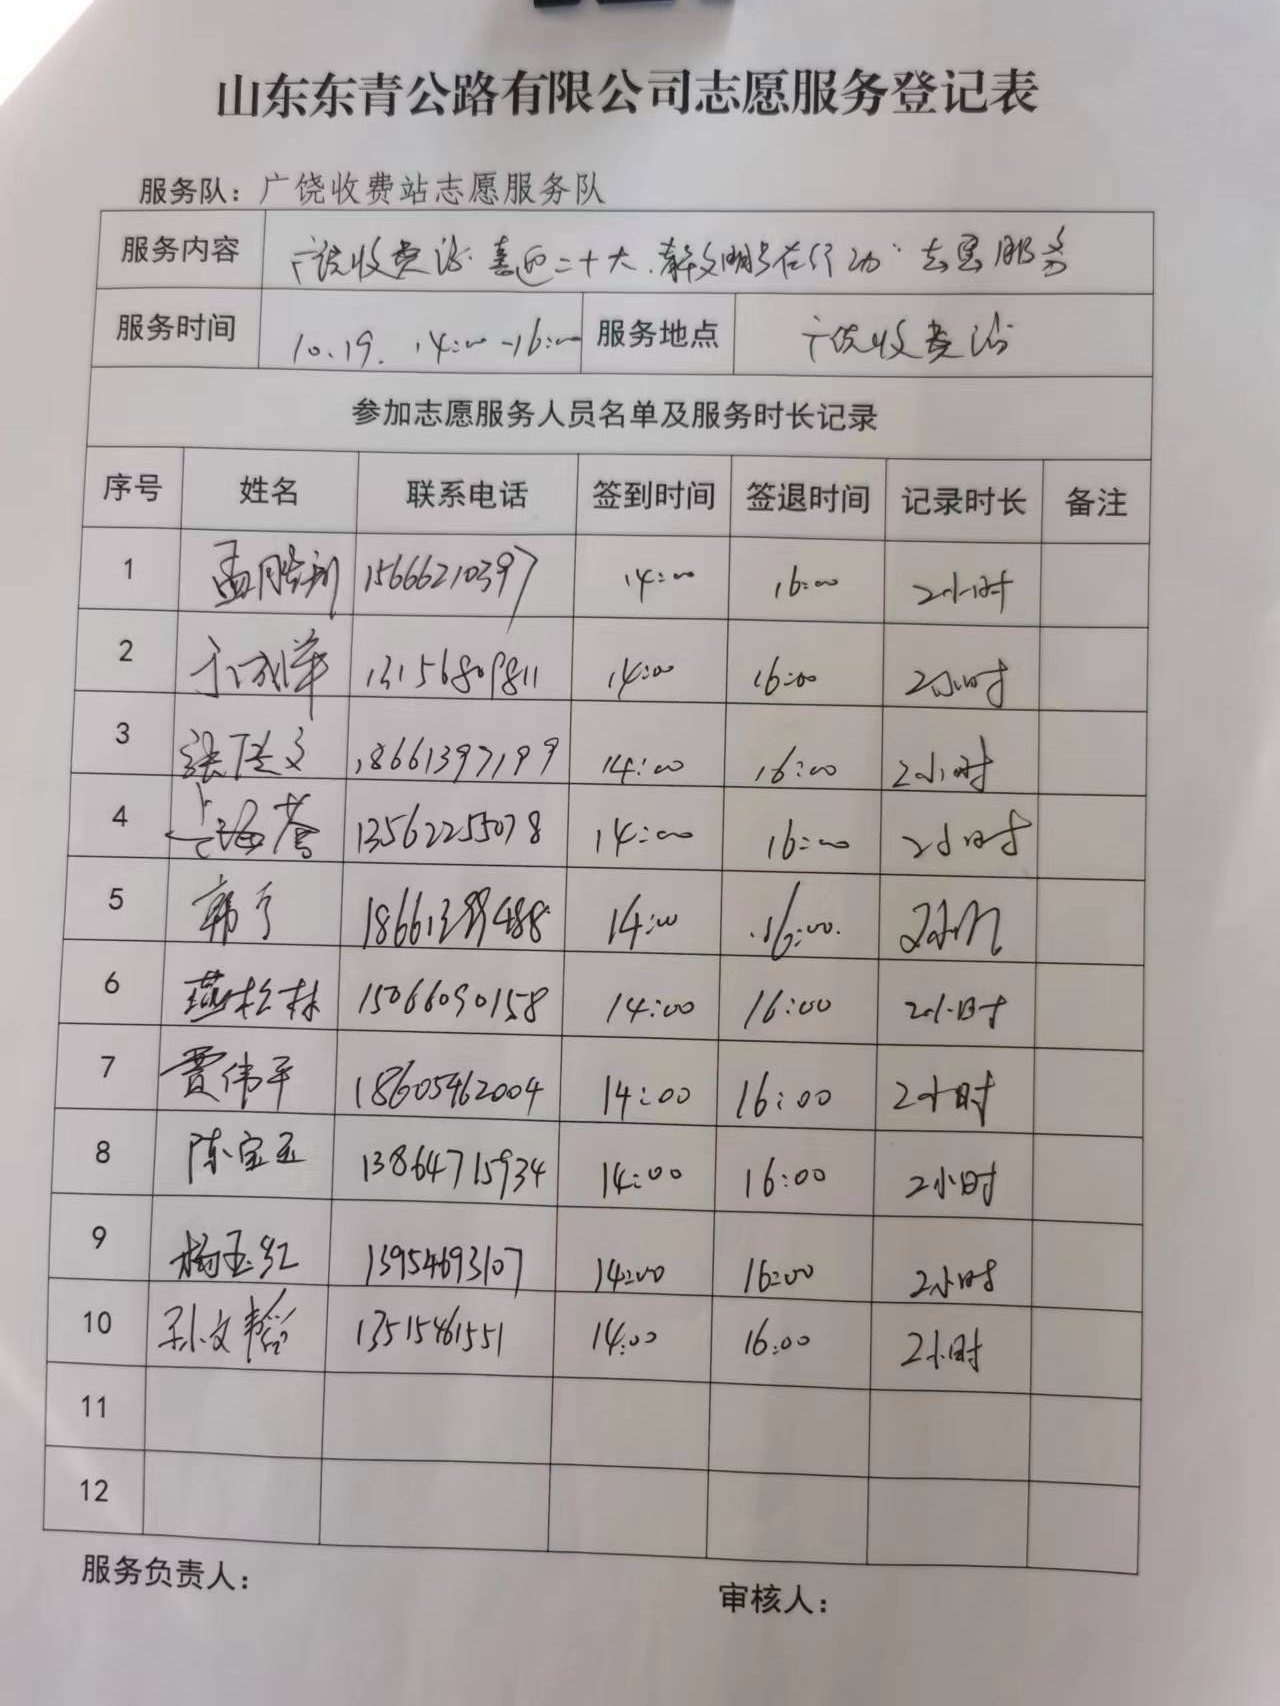 山东东青公路有限公司志愿服务登记表
服务队：广饶收费站志愿服务队
服务内容 广饶收费站"喜迎二十大、青年文明号在行动"志愿服务
服务时间 10.19. 14:00-16:00 服务地点 广饶收费站
参加志愿服务人员名单及服务时长记录
序号 姓名 联系电话 签到时间 签退时间 记录时长 备注
1 孟胜利 15666210397 14:00 16:00 2小时
2 于成洋 13156809811 14:00 16:00 2小时
3 张廷文 18661397199 14:00 16:00 2小时
4 13562255078 14:00 16:00 2小时
5 韩亨 18661399488 14:00 16:00 2小时
6 燕松林 15066090158 14:00 16:00 2小时
7 贾伟平 18605462004 14:00 16:00 2小时
8 陈宝玉 13864715934 14:00 16:00 2小时
9 杨玉红 13954693107 14:00 16:00 2小时
10 孙文韬 13515461551 14:00 16:00 2小时
11
12
服务负责人：
审核人：